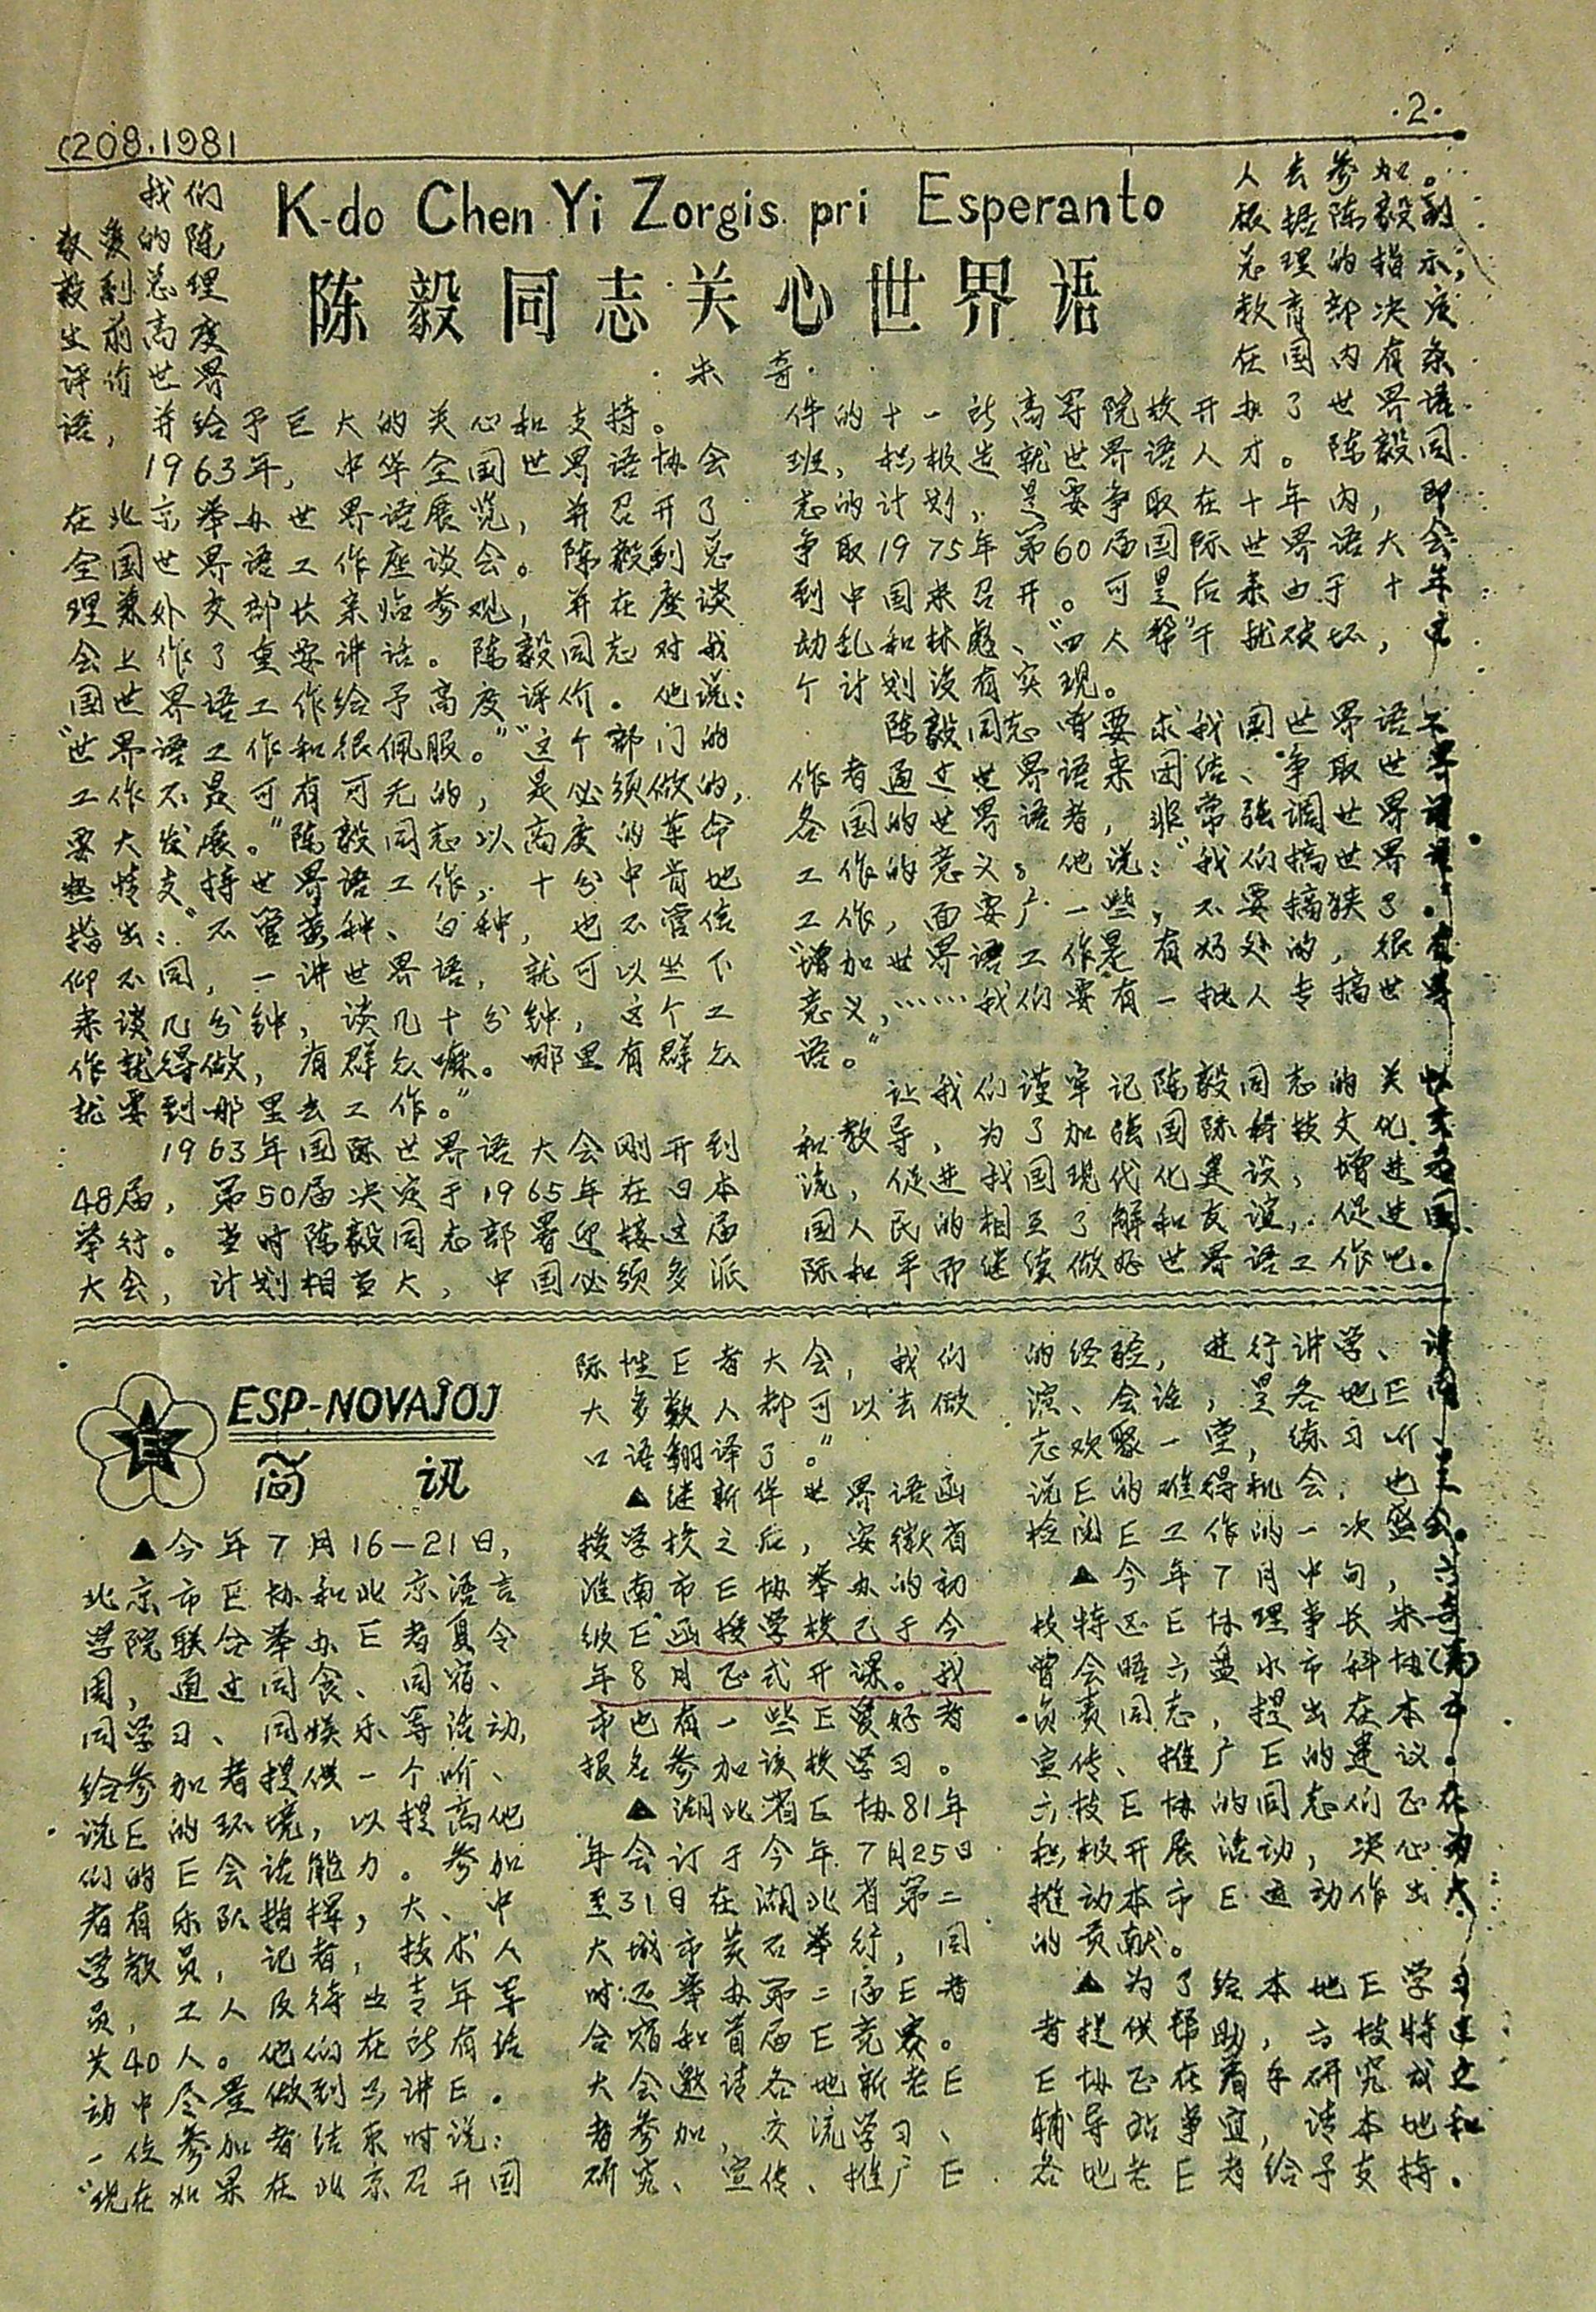 (208.1981
·2·
K-do Chen Yi Zorgis pri Esperanto
陈毅同志关心世界语
朱奇
我们
敬爱的陈
毅副总理
生前高度
评价世界
语，并给予巨大的关心和支持。
1963年，中华全国世界语协会
在北京举办世界语展览，并召开了
全国世界语工作座谈会。陈毅副总
理兼外交部长亲临参观，并在座谈
会上作了重要讲话。陈毅同志对我
国世界语工作给予高度评价。他说：
“世界语工作和很佩服。”“这个部门的
工作不是可有可无的，是必须做的，
要大发展。”陈毅同志以高度的革命
热情支持世界语工作，十分中肯地
指出：“不管黄种、白种，也不管信
仰不同，一讲世界语，就可以坐下
来谈几分钟，谈几十分钟，这个工
作就得做，有群众嘛。哪里有群众
就要到那里去工作。”
1963年国际世界语大会刚开到
48届，第50届决定于1965年在日本
举行。当时陈毅同志部署迎接这届
大会，计划相当大，中国必须多派
人去参加。
根据陈毅副
总理的指示，
教育部决定
在国内有条
件的十一所高等院校开办了世界语
班，积极造就世界语人才。陈毅同
志的计划，是要争取在十年内，即
争取1975年第60届国际世界语大会
到中国来召开。可是后来由于十年
动乱和林彪、“四人帮”干扰破坏，这
个计划没有实现。
陈毅同志曾要求我国世界语工
作者通过世界语来团结、争取世界
各国的世界语者，非常强调世界语
工作的意义。他说：“我们搞世界语
工作，面要广一些，不要搞狭了。
“增加世界语工作是有好处的，很有
意义，……我们要有一批人专搞世界
语。”
让我们谨牢记陈毅同志的关怀
和教导，为了加强国际科技文化交
流，促进我国现代化建设，增进各
国人民的相互了解和友谊，促进国
际和平而继续做好世界语工作吧。
E
ESP-NOVAĴOJ
简讯
▲今年7月16—21日，
北京市E协和北京语言
学院联合举办E者夏令
周，通过同食、同宿、
同学习、同娱乐等活动，
给参加者提供一个听、
说E的环境，以提高他
们的E会话能力。参加
者有乐队指挥，大、中
学教员，记者，技术人
员，工人及待业青年等
共40人。他们在所有活
动中尽量做到只讲E。
一位参加者结束时说：
“现在如果在北京召开国
际性E者大会，我们
大多数人都可以去做
口语翻译了。”
▲继新华世界语函
授学校之后，安徽省
淮南市E协举办的初
级E函授学校已于今
年8月正式开课。我
市也有一些E爱好者
报名参加该校学习。
▲湖北省E协81年
年会订于今年7月25日
至31日在湖北省第二
大城市黄石举行，同
时还举办第二届E者
合宿和首届E竞赛。
大会邀请各地新老E
者参加，交流学习、
研究、宣传、推广E
的经验，进行讲学、讲
演、会话，是各地E同
志欢聚一堂，练习听、
说E的难得机会，也是
检阅E工作的一次盛会。
▲今年7月中旬，六
枝特区E协理事长朱奇
曾会晤六盘水市科协(筹)
负责同志，提出在本市
宣传、推广E的建议。
六枝E协的同志们正在
积极开展活动，决心为
推动本市E运动作出大
的贡献。
▲为了给本地E学习
者提供帮助，六枝特区
E协正在着手研究成立
辅导站事宜，请本地和
各地老E者给予支持。